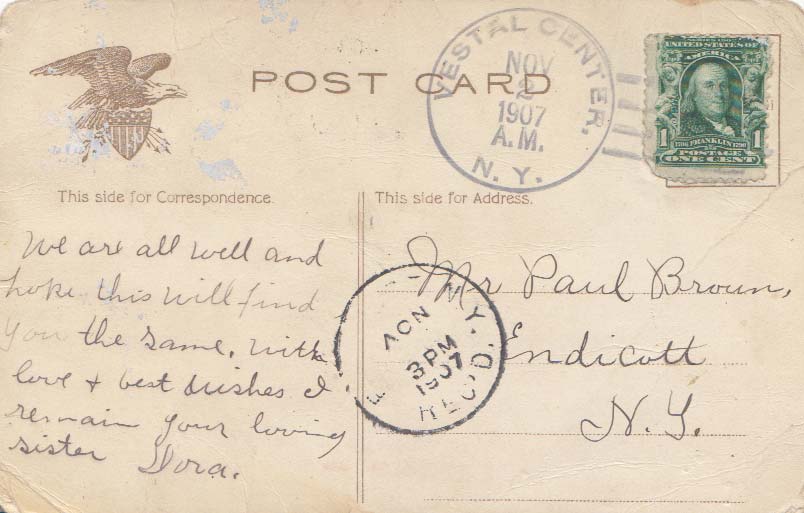 POST CARD
VESTAL CENTER,
NOV
2
1907
A.M.
N.Y.
SERIES 1902
UNITED STATES OF
AMERICA
1 1
1706 FRANKLIN 1790
POSTAGE
ONE CENT
This side for Correspondence.
We are all well and
hope this will find
you the same. With
love + best wishes I
remain your loving
sister Dora.
This side for Address.
Mr Paul Brown,
Endicott
N.Y.
N.Y.
NOV
3 PM
1907
REC'D.